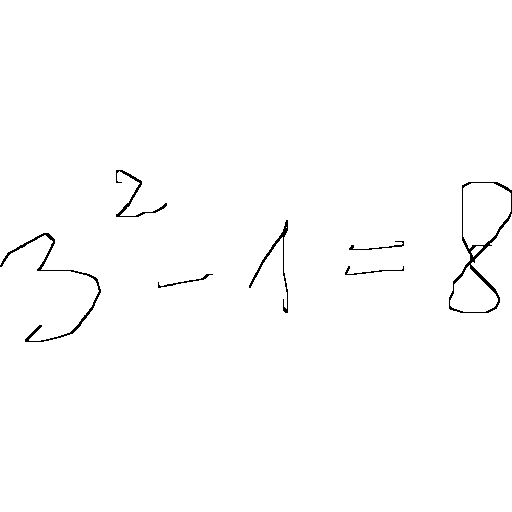 3² - 1 = 8